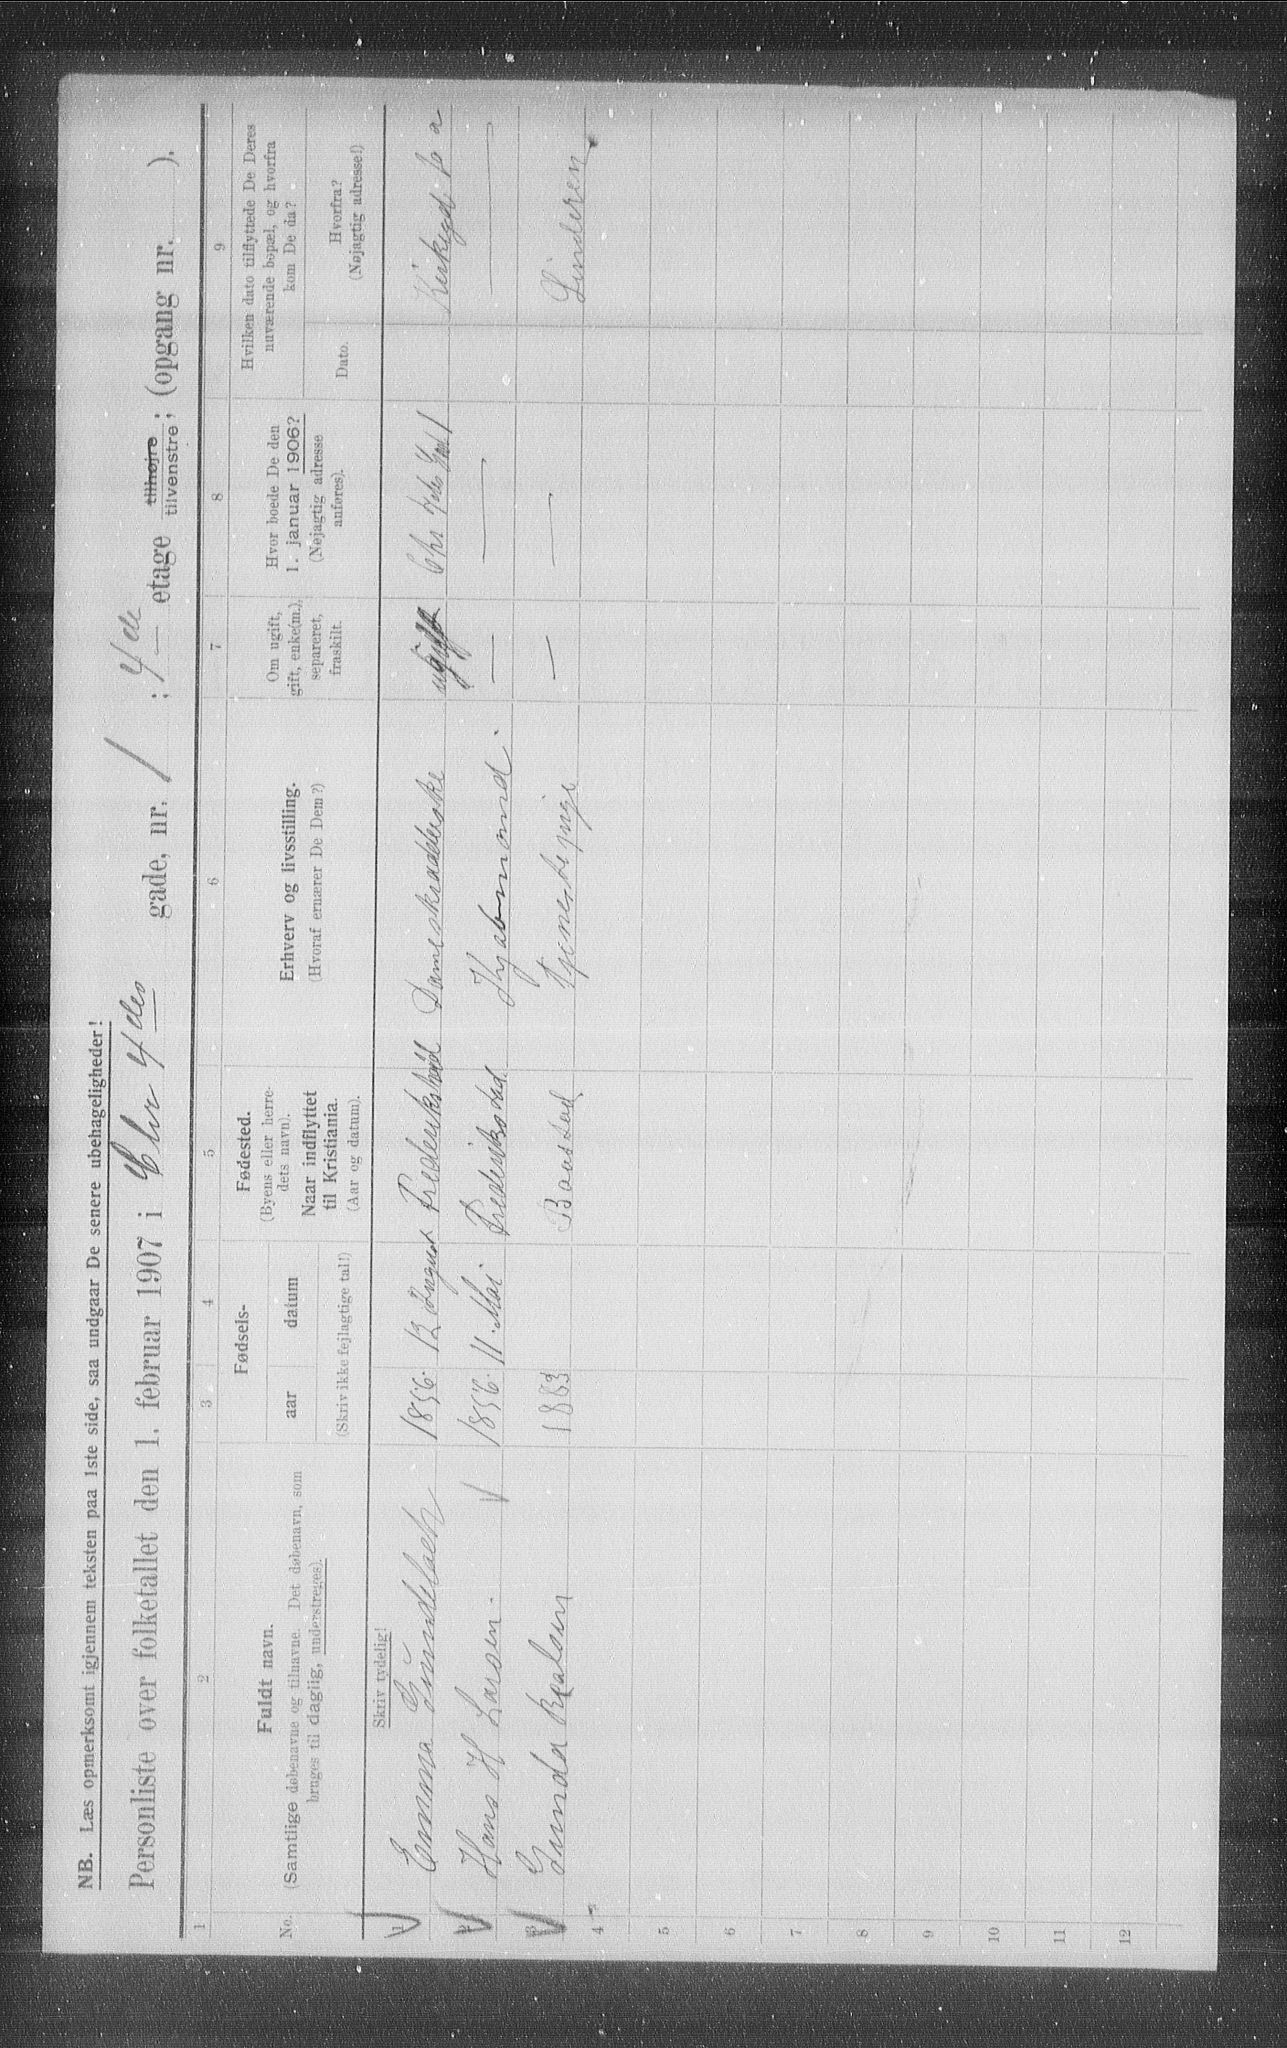 NB. Læs opmerksomt igjennem teksten paa 1ste side, saa undgaar De senere ubehageligheder!
Personliste over folketallet den 1. februar 1907 i Chr 4des gade, nr. 1 ; 4de etage tilhøjre tilvenstre; (opgang nr. ).
1 2 3 4 5 6 7 8 9
No.
Fuldt navn.
(Samtlige døbenavne og tilnavne. Det døbenavn, som
bruges til daglig, understreges).
Fødsels-
aar datum
(Skriv ikke fejlagtige tal!)
Fødested.
(Byens eller herre-
dets navn).
Naar indflyttet
til Kristiania.
(Aar og datum).
Erhverv og livsstilling.
(Hvoraf ernærer De Dem?)
Om ugift,
gift, enke(m.),
separeret,
fraskilt.
Hvor boede De den
1. januar 1906?
(Nøjagtig adresse
anføres).
Hvilken dato tilflyttede De Deres
nuværende bopæl, og hvorfra
kom De da?
Dato.
Hvorfra?
(Nøjagtig adresse!)
Skriv tydelig!
1 Emma Gündelach 1856. 12 August Frederikshald Dameskrædderske ugift Chr 4des Gad 1 Kirkegd 10 a
2 Hans H Larsen. 1856. 11. Mai Frederiksstad. — — —
3 Gunda 1883 Baastad Tjenestepige — — Linderen
4
5
6
7
8
9
10
11
12